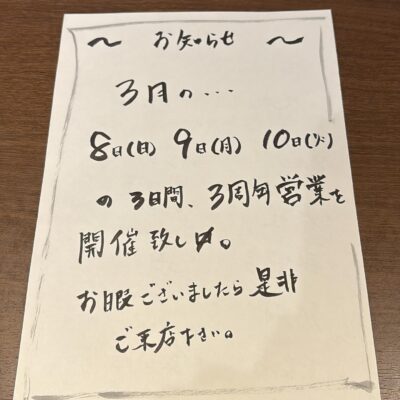 〜 お知らせ 〜
3月の…
8日(日) 9日(月) 10日(火)
の3日間、3周年営業を
開催致し〼。
お暇ございましたら是非
ご来店下さい。